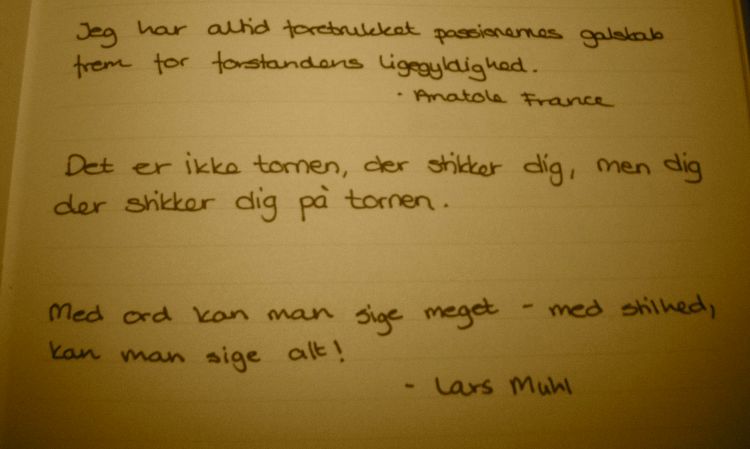 Jeg har altid foretrukket passionernes galskab
frem for forstandens ligegyldighed.
- Anatole France
Det er ikke tornen, der stikker dig, men dig
der stikker dig på tornen.
Med ord kan man sige meget - med stilhed,
kan man sige alt!
- Lars Muhl